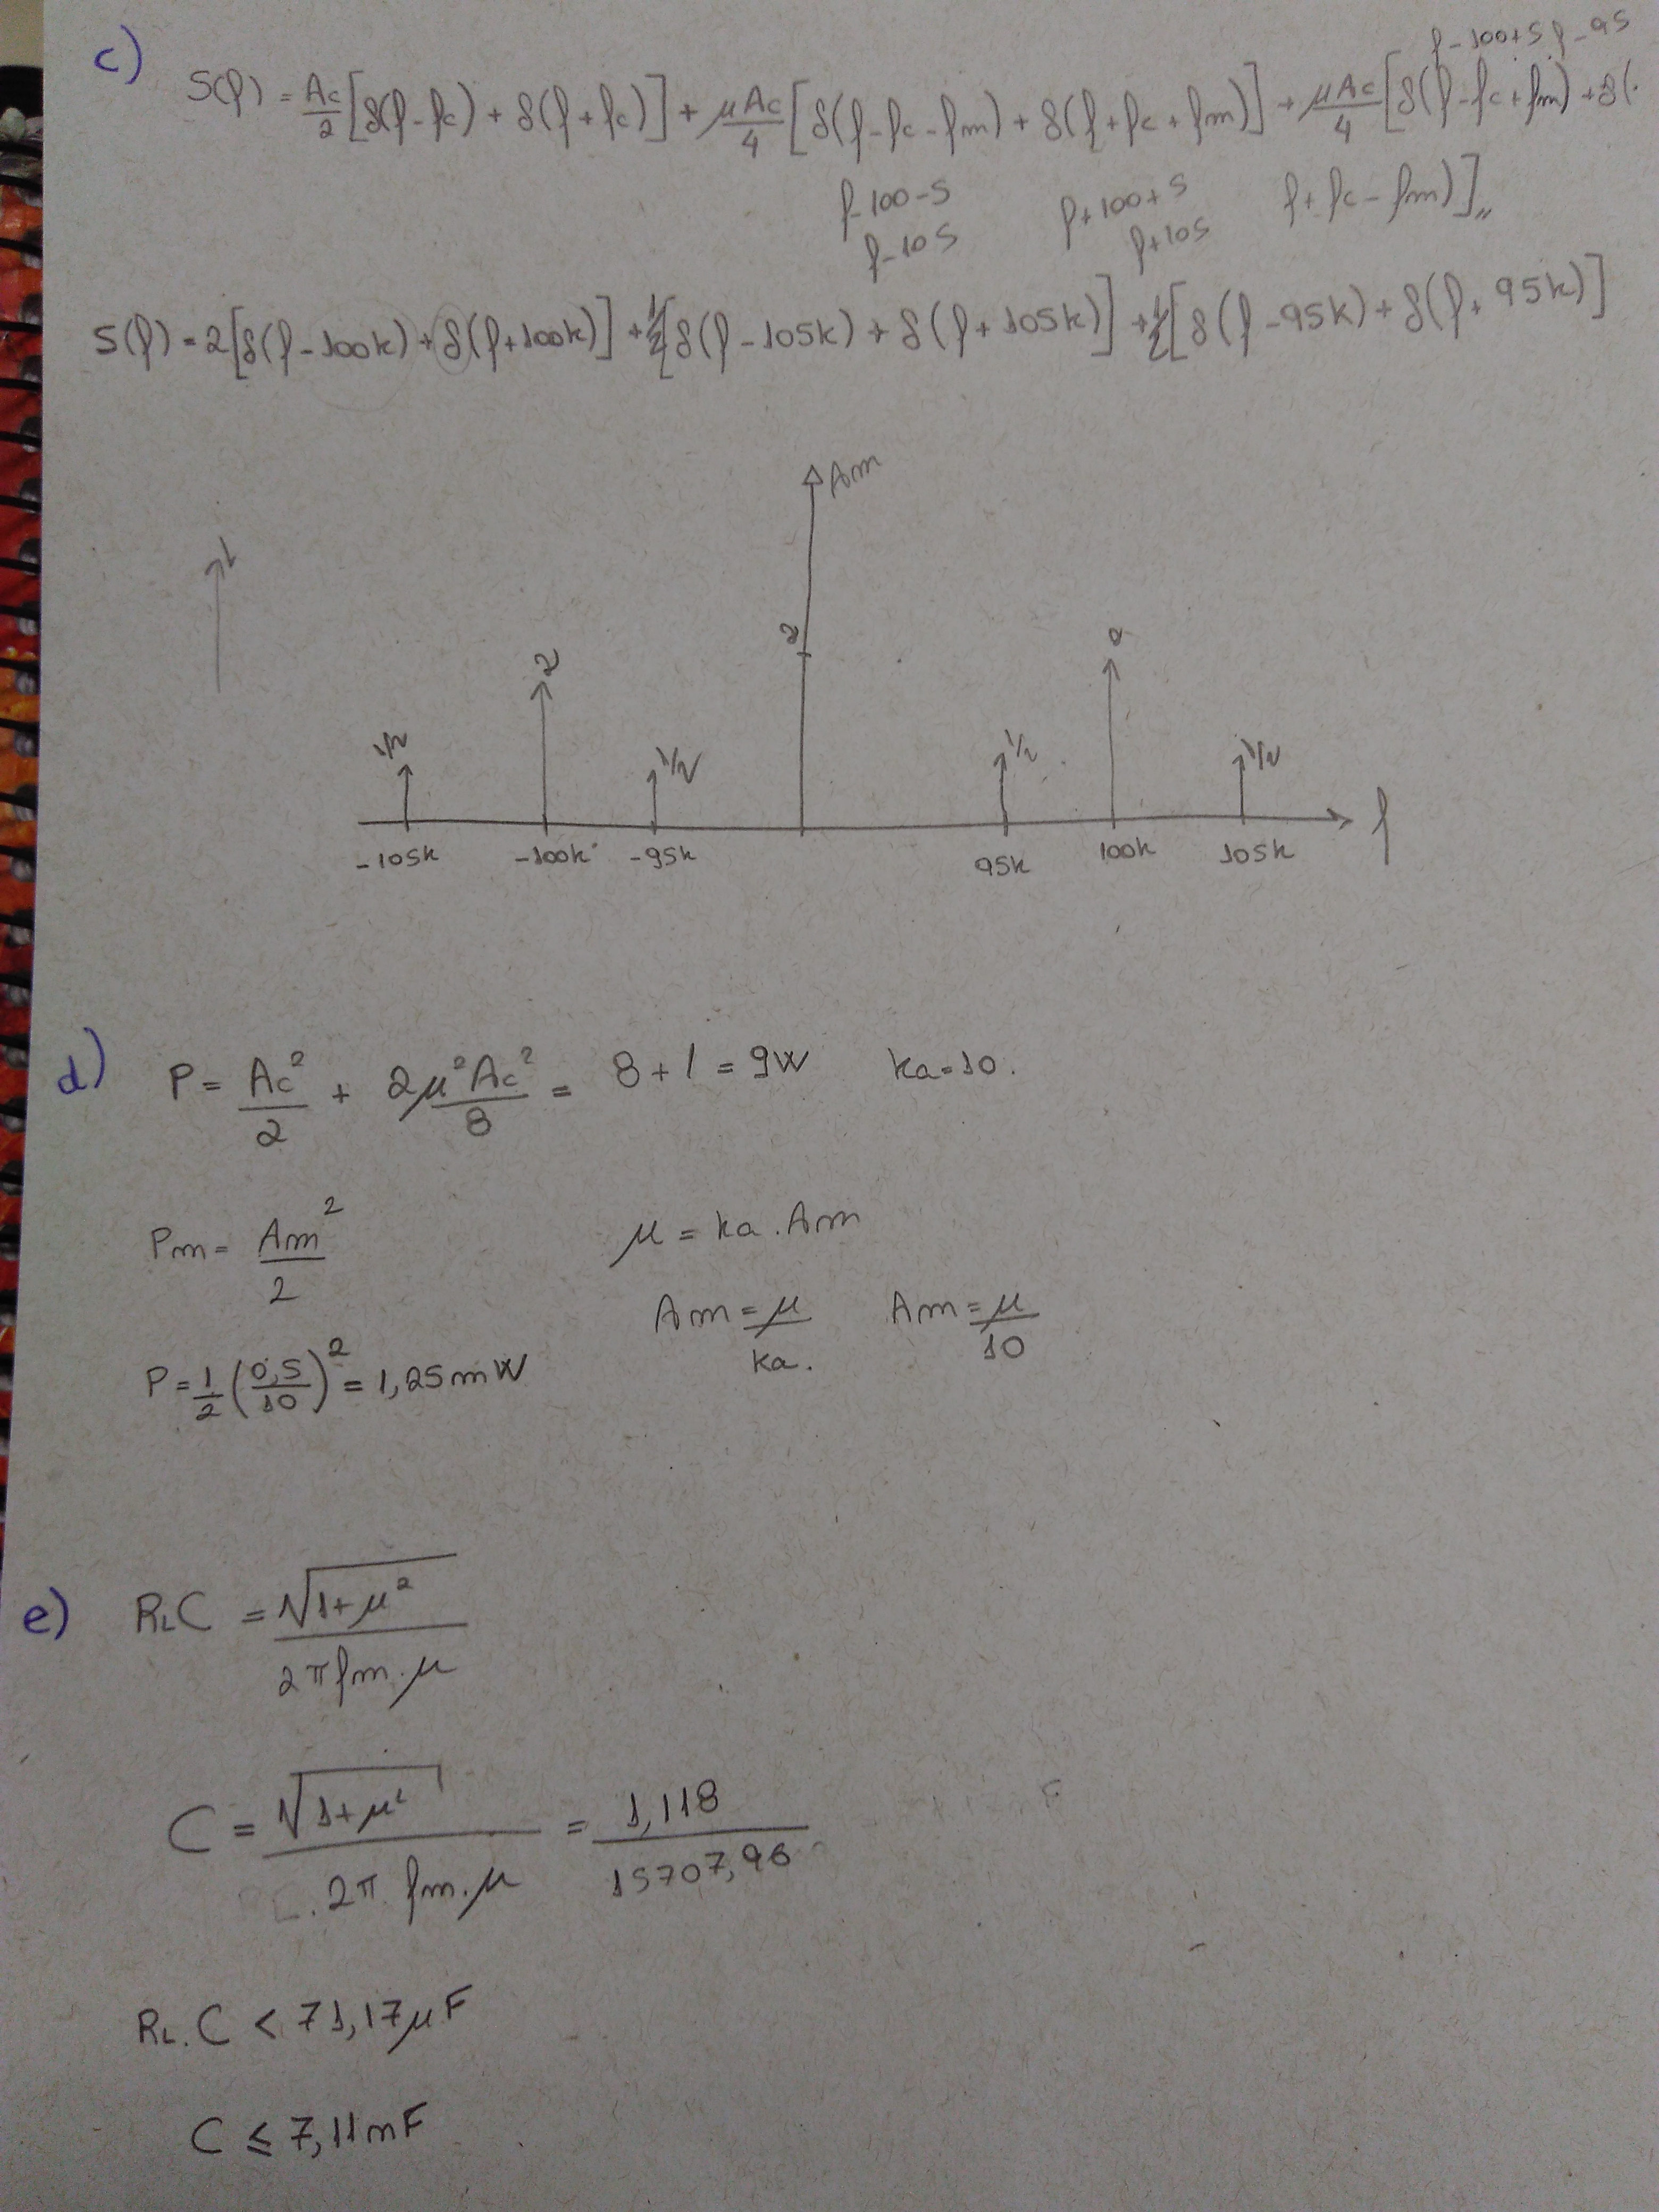 c)
f-100+5 f-95
S(f) = Ac/2 [δ(f-fc) + δ(f+fc)] + μAc/4 [δ(f-fc-fm) + δ(f+fc+fm)] + μAc/4 [δ(f-fc+fm) + δ(
f-100-5 f+100+5 f+fc-fm)]"
f-105 f+105
S(f) = 2[δ(f-100k) + δ(f+100k)] + 1/2[δ(f-105k) + δ(f+105k)] + 1/2[δ(f-95k) + δ(f+95k)]
Am
1
2
1/2 2 1/2 1/2 1/2
-105k -100k -95k 95k 100k 105k f
d) P = Ac²/2 + 2μ²Ac²/8 = 8+1 = 9W ka=10.
Pm = Am²/2 μ = ka.Am
Am = μ/ka. Am = μ/10
P = 1/2 (0,5/10)² = 1,25mW
e) RLC = √1+μ² / 2πfm.μ
C = √1+μ² / .2π fm.μ = 1,118 / 15707,96
F
RL.C < 71,17μF
C ≤ 7,11mF